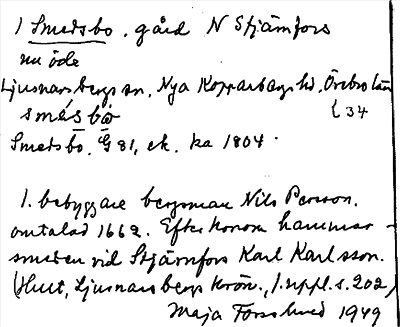 1 Smedsbo, gård N Stjärnfors
nu öde
Ljusnarsbergs sn, Nya Kopparbergs hd, Örebro län
smésbo
34
Smedsbo. G 81, ek. ka 1804.
1. bebyggare bergsman Nils Persson,
omtalad 1662. Efter honom hammar-
smeden vid Stjärnfors Karl Karlsson.
(Hult, Ljusnarsbergs krön., 1. uppl. s. 202)
Maja Forslund 1949